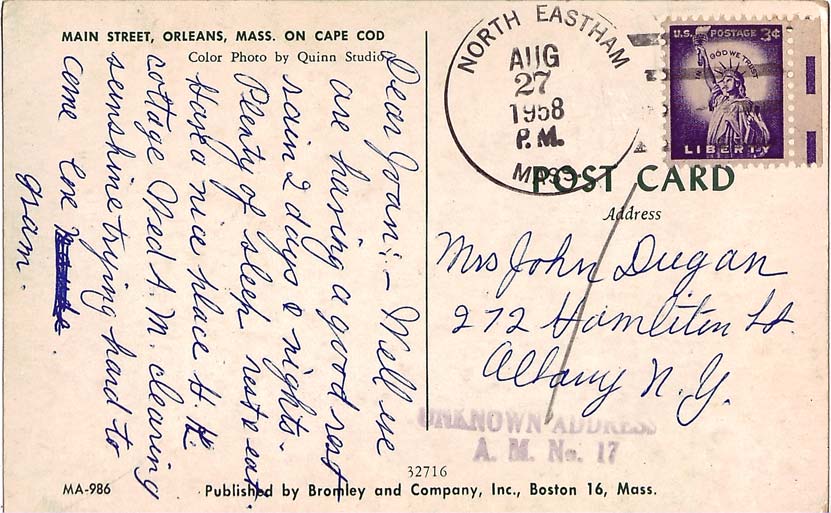 MAIN STREET, ORLEANS, MASS. ON CAPE COD
Color Photo by Quinn Studio
Dear Joan:- Well we
are having a good rest
rain 2 days & nights.
Plenty of sleep rest & eat.
Have a nice place H.K.
cottage Wed A.M. clearing
sunshine trying hard to
come
Gram.
NORTH EASTHAM
AUG
27
1958
P.M.
MASS.
U.S. POSTAGE 3¢
IN GOD WE TRUST
LIBERTY
POST CARD
Address
Mrs John Dugan
272 Hamliton St.
Albany N.Y.
UNKNOWN ADDRESS
A. M. No. 17
32716
MA-986
Published by Bromley and Company, Inc., Boston 16, Mass.